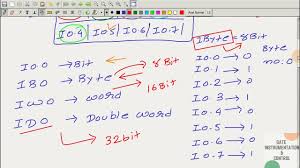 I0.4 I0.5 I0.6 I0.7
I0.0 → Bit
IB0 → Byte → 8Bit
IW0 → word 16Bit
ID0 → Double word
32bit
1Byte = 8Bit
Byte
no:0
I0.0 → 0
I0.1 → 0
I0.2 → 1
I0.3 → 1
I0.4 → 1
I0.5 → 1
I0.6 → 1
I0.7 → 1
GATE
INSTRUMENTATION
& CONTROL